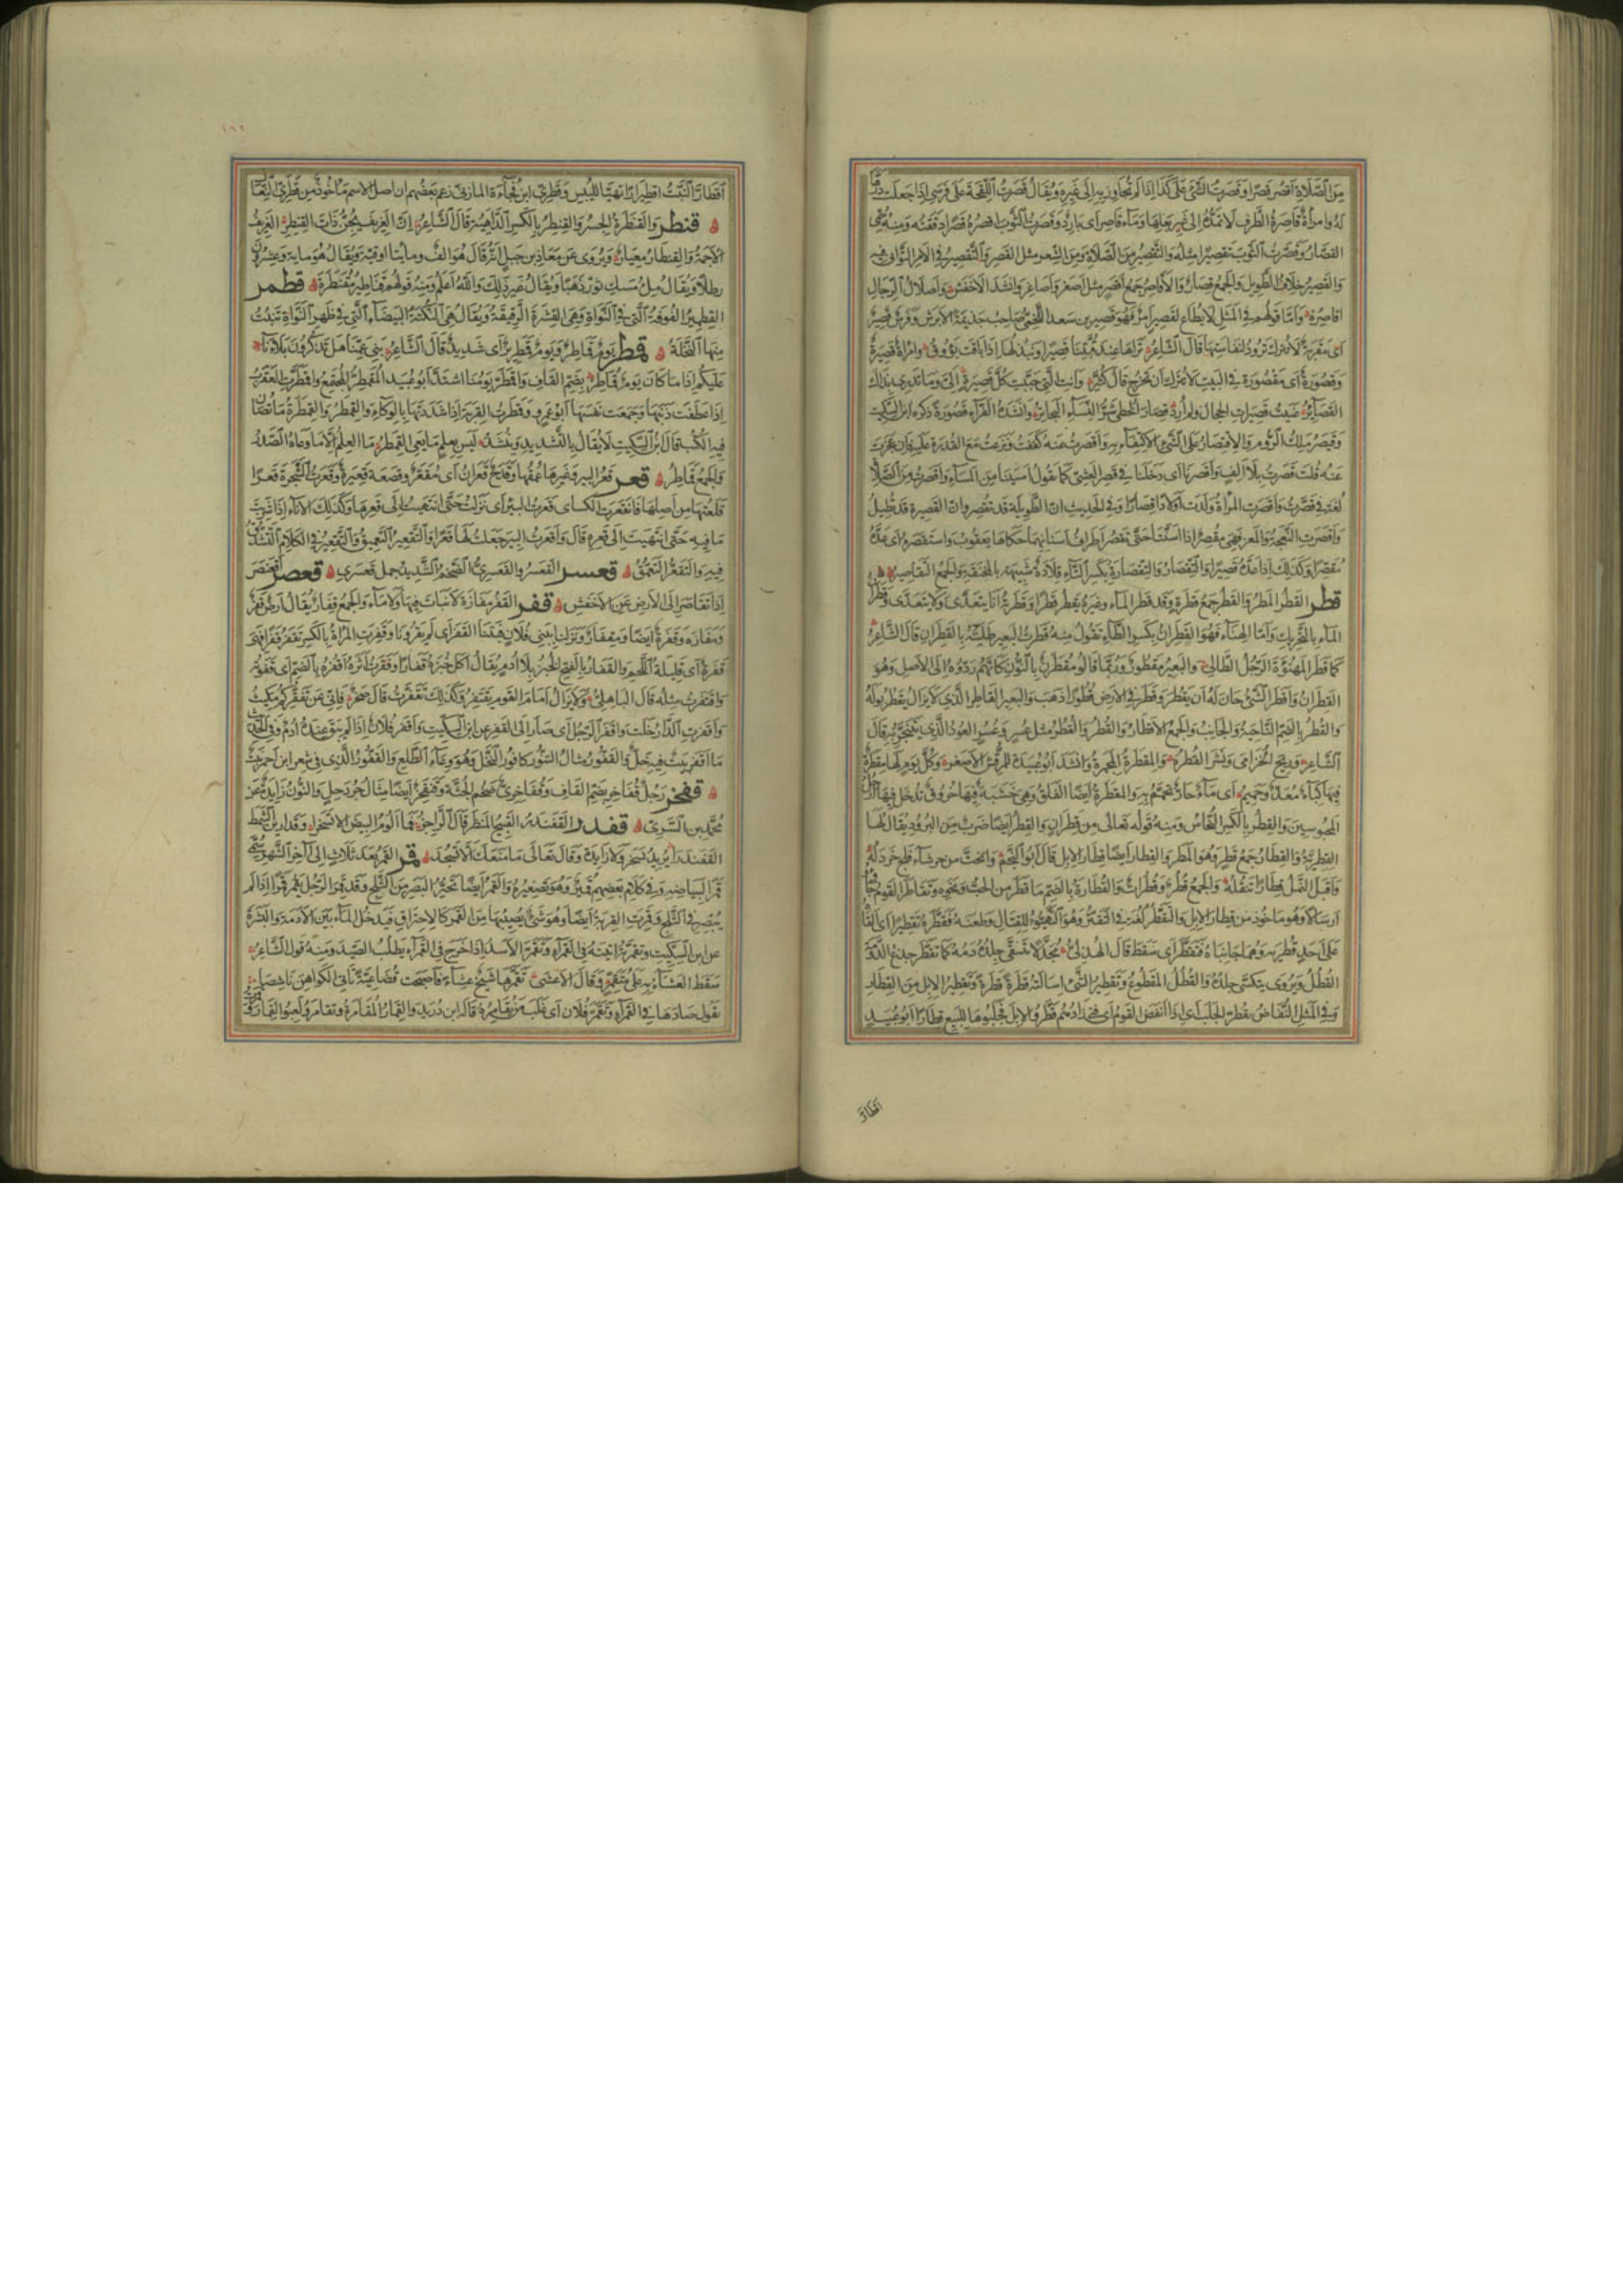 من الصلاة اقصر قصرا وقصرت الشئ على كذا اذا لم تجاوز به الى غيره ويقال قصرت اللقحة على فرسى اذا جعلت درّها
له وامرأة قاصرة الطرف لا تمده الى غير بعلها وماء قاصر اى بارد وقصرت الثوب اقصره قصرا دققته ومنه سمى
القصار وقصرت الثوب تقصيرا مثله والتقصير من الصلاة ومن الشعر مثل القصر والتقصير فى الامر التوانى فيه
والقصير خلاف الطويل والجمع قصار والاقاصر جمع اقصر مثل اصغر واصاغر وانشد الاخفش واصلال الرجال
اقاصره واما قولهم فى المثل لا يطاع لقصير امر فهو قصير بن سعد اللخمى صاحب جذيمة الابرش وفرس قصير
اى مقربة لا تترك ترود لنفاستها قال الشاعر تراها عند قبتنا قصيرا ونبذلها اذا باقت بؤوق وامرأة قصيرة
وقصورة اى مقصورة فى البيت لا تترك ان تخرج قال كثير وانت التى حببت كل قصيرة الى وما تدرى بذاك
القصائر عنيت قصيرات الحجال ولم ارد قصار الخطى شر النساء البحاتر وانشده الفراء قصورة ذكره ابن السكيت
وقيصر ملك الروم والاقتصار على الشئ الاكتفاء به واقصرت عنه كففت ونزعت مع القدرة عليه فان عجزت
عنه قلت قصرت بلا الف واقصرنا اى دخلنا فى قصر العشى كما تقول امسينا من المساء واقصرت من الصلاة
لغة فى قصرت واقصرت المرأة ولدت اولادا قصارا وفى الحديث ان الطويلة قد تقصر وان القصيرة قد تطيل
واقصرت النعجة والمعز فهى مقصر اذا اسنتا حتى تقصر اطراف اسنانهما حكاها يعقوب واستقصره اى عده
مقصرا وكذلك اذا عده قصيرا والتقصار والتقصارة بكسر التاء قلادة شبيهة بالمخنقة والجمع التقاصير
قطر القطر المطر والقطر جمع قطرة وقد قطر الماء وغيره يقطر قطرا وقطرته انا يتعدى ولا يتعدى وقطران
الماء بالتحريك واما الهناء فهو القطران بكسر الطاء تقول منه قطرت البعير طليته بالقطران قال الشاعر
كما قطر المهنوءة الرجل الطالى والبعير مقطور وربما قالوا مقطرن بالنون كانهم ردوه الى الاصل وهو
القطران واقطر الشئ حان له ان يقطر وقطر فى الارض قطورا ذهب والبعير القاطر الذى لا يزال يقطر بوله
والقطر بالضم الناحية والجانب والجمع الاقطار والقطر والقطر مثل عسر وعسر العود الذى يتبخر به قال
الشاعر وريح الخزامى ونشر القطر والمقطرة المجمرة وانشد ابو عبيدة للمرقش الاصغر وكل يوم لها مقطرة
فيها كباء معد وحميم اى ماء حار تحمم به والمقطرة ايضا الفلق وهى خشبة فيها خروق تدخل فيها ارجل
المحبوسين والقطر بالكسر النحاس ومنه قوله تعالى من قطر ان والقطر ايضا ضرب من البرود يقال لها
القطرية والقطار جمع قطر وهو المطر والقطار ايضا قطار الابل قال ابو النجم وانحت من حرشاء فلج خردله
واقبل النمل قطارا تنقله والجمع قطر وقطرات والقطارة بالضم ما قطر من الحب ونحوه وتقاطر القوم جاؤا
ارسالا وهو ماخوذ من قطار الابل والتقطر لغة فى التقتر وهو التهيؤ للقتال وطعنه فقطره تقطيرا اى القاه
على احد قطريه وهما جانباه فتقطر اى سقط قال الهذلى مجدلا يتسقى جلده دمه كما تقطر جذع الدومة
القطل ويروى يتكسى جلده والقطل المقطوع وتقطير الشئ اسالته قطرة قطرة وتقطير الابل من القطار
وفى المثل النفاض يقطر الجلب اى اذا انفض القوم اى فنى زادهم قطروا الابل فجلبوها للبيع قطارا ابو عبيد
اقطار
اقطار النبت اقطيرارا تهيا لليبس وقطرى ابن فجاءة المازنى زعم بعضهم ان اصل الاسم ماخوذ من قطرى النعال
قنطر والقنطرة الجسر والقنطر بالكسر الداهية قال الشاعر ان الغريف يجن ذات القنطر الغريف
الاجمة والقنطار معيار ويروى عن معاذ بن جبل انه قال هو الف ومايتا اوقية ويقال هو ماية وعشرون
رطلا ويقال مل مسك ثور ذهبا ويقال غير ذلك والله اعلم ومنه قولهم قناطير مقنطرة قطمر
القطمير الفوفة التى فى النواة وهى القشرة الرقيقة ويقال هى النكتة البيضاء التى فى ظهر النواة تنبت
منها النخلة قمطر يوم قماطر ويوم قمطرير اى شديد قال الشاعر بنى عمنا هل تذكرون بلاءنا
عليكم اذا ما كان يوم قماطر بضم القاف واقمطر يومنا اشتد ابو عبيد المقمطر المجتمع واقمطرت العقرب
اذا عطفت ذنبها وجمعت نفسها ابو عمرو وقمطرت القربة اذا شددتها بالوكاء والقمطر والقمطرة ما تصان
فيه الكتب قال ابن السكيت لا يقال بالتشديد وينشد ليس بعلم ما يعى القمطر ما العلم الا ما وعاه الصدر
والجمع قماطر قعر قعر البير وغيرها عمقها وقدح قعران اى مقعر وقصعة قعيرة وقعرت الشجرة قعرا
قلعتها من اصلها فانقعرت الكساى قعرت البير اى نزلت حتى انتهيت الى قعرها وكذلك الاناء اذا شربت
ما فيه حتى انتهيت الى قعره قال واقعرت البير جعلت لها قعرا والتقعير التعميق والتقعير فى الكلام التشدق
فيه والتقعر التعمق قعسر القعسر والقعسرى الضخم الشديد جمل قعسرى قعصر اقعنصر
اذا تقاصر الى الارض عن الاخفش قفر القفر مفازة لا نبات فيها ولا ماء والجمع قفار يقال ارض قفر
ومفازة وقفرة ايضا ومقفار ونزلنا ببنى فلان فبتنا القفر اى لم يقرونا وقفرت المرأة بالكسر تقفر قفرا فهى
قفرة اى قليلة اللحم والقفار بالفتح الخبز بلا ادم يقال اكل خبزه قفارا وقفرت اثره اقفره بالضم اى قفوته
واقتفرت مثله قال الباهلى ولا يزال امام القوم يقتفر وكذلك تقفرت قال صخر فانى عن تقفركم مكيث
واقفرت الدار خلت واقفر الرجل اى صار الى القفر عن ابن السكيت واقفر فلان اذا لم يبق عنده ادم وفى الحديث
ما اقفر بيت فيه خل والقفور مثال التنور كافور النخل وهو وعاء الطلع والقفور الذى فى شعر ابن احمر نبت
قفخر رجل قفاخر بضم القاف وقفاخرى ضخم الجثة وقنفخر ايضا مثال جردحل والنون زايدة عن
محمد بن السرى قفدر القفندر القبيح المنظر قال الراجز فما الوم البيض الا تسخرا وقد راين الشمط
القفندرا يريد ان تسخر ولا زايدة وقال تعالى ما منعك الا تسجد قمر القمر بعد ثلاث الى آخر الشهر سمى
قمرا لبياضه وفى كلام بعضهم قمير وهو تصغيره والقمر ايضا تحير البصر من الثلج وقد قمر الرجل يقمر قمرا اذا لم
يبصر فى الثلج وقمرت القربة ايضا وهو شئ يصيبها من القمر كالاحتراق فيدخل الماء بين الادمة والبشرة
عن ابن السكيت وتقمرته اتيته فى القمراء وتقمر الاسد اذا خرج فى القمراء يطلب الصيد ومنه قول الشاعر
سقط العشاء به على متقمر وقال الاعشى تقمرها شيخ عشاء فاصبحت قضاعية تاتى الكواهن ناشصا
يقول صادها فى القمراء وتقمر فلان اى غلب من يقامره قاله ابن دريد والقمار المقامرة وتقامروا لعبوا القمار